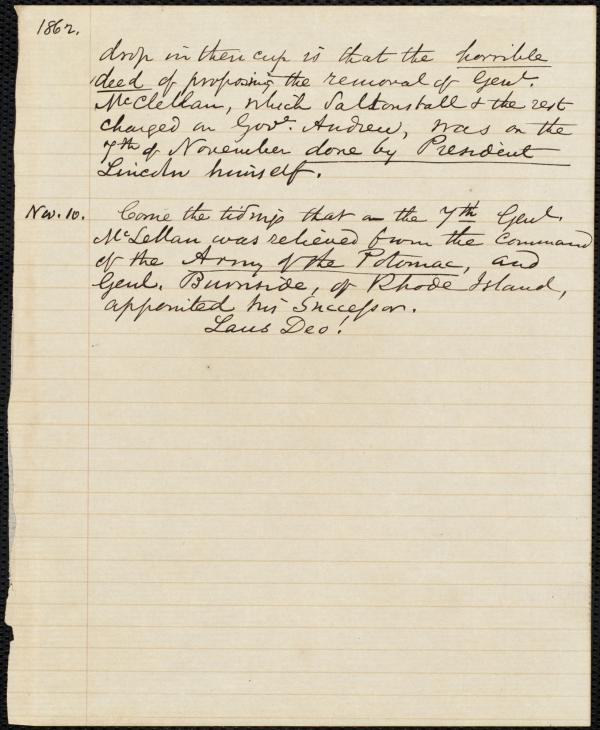 1862.
drop in their cup is that the horrible
deed of proposing the removal of Genl.
McClellan, which Saltonstall & the rest
charged on Govr. Andrew, was on the
7th of November done by President
Lincoln himself.
Nov. 10. Come the tidings that on the 7th Genl.
McLellan was relieved from the command
of the Army of the Potomac, and
Genl. Burnside, of Rhode Island,
appointed his Successor.
Laus Deo!